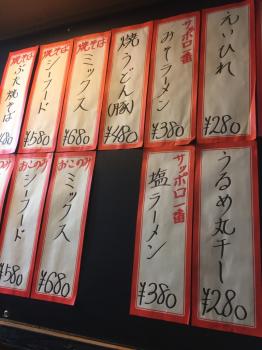 えいひれ
¥280
サッポロ一番
みそラーメン
¥380
焼うどん(豚)
¥480
焼そば
ミックス
¥680
焼そば
シーフード
¥580
焼そば
ぶた焼そば
¥480
うるめ丸干し
¥280
サッポロ一番
塩ラーメン
¥380
おこのみ
ミックス
¥680
おこのみ
シーフード
¥580